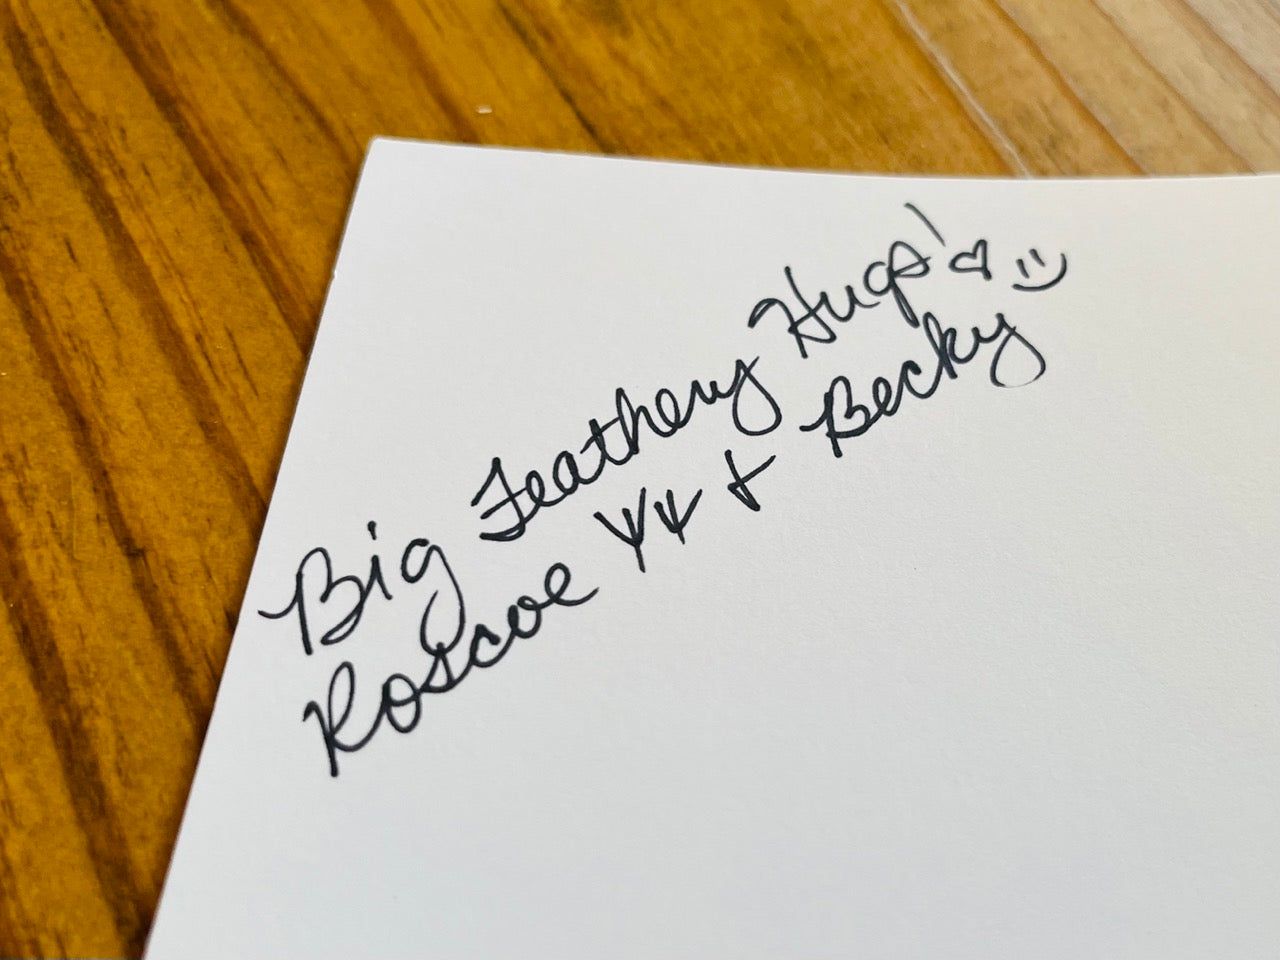 Big Feathery Hugs! ♡ :)
Roscoe ΨΨ + Becky